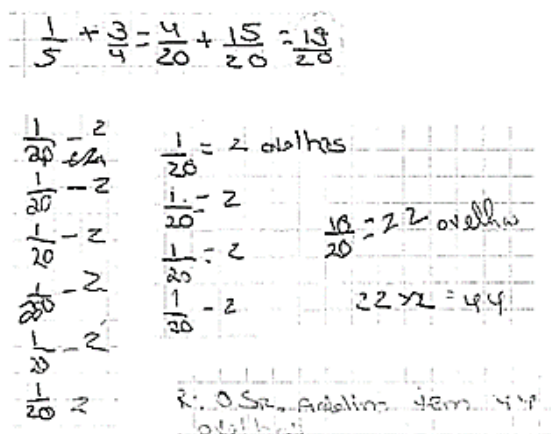 1/5 + 3/4 = 4/20 + 15/20 = 19/20
1/20 - 2
1/20 - 2
1/20 - 2
1/20 - 2
1/20 - 2
1/20 2
1/20 = 2 ovelhas
1/20 = 2
1/20 = 2
1/20 - 2
10/20 = 22 ovelhas
22 x 2 = 44
R: O Sr. Adelino tem 44
ovelhas